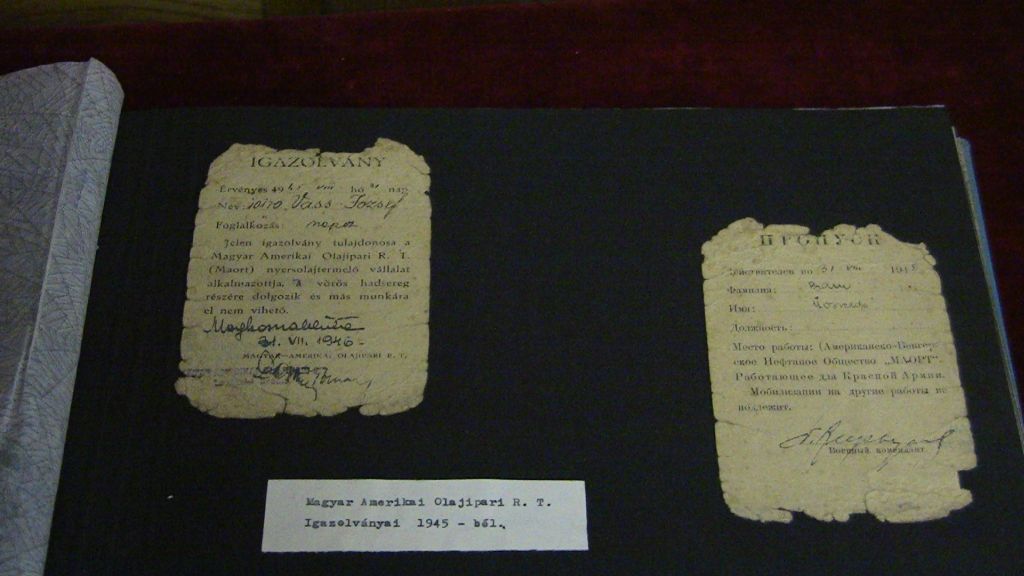 IGAZOLVÁNY
Érvényes 194 VIII hó 31 nap
Név: Vass József
Foglalkozás: napsz
Jelen igazolvány tulajdonosa a
Magyar Amerikai Olajipari R. T.
(Maort) nyersolajtermelő vállalat
alkalmazottja, a vörös hadsereg
részére dolgozik és más munkára
el nem vihető.
31. VII. 1946.
MAGYAR—AMERIKAI OLAJIPARI R. T.
ПРОПУСК
Действителен по 31 VIII 194
Фамилия:
Имя:
Должность:
Место работы: (Американско-Венгер-
ское Нефтаное Общество „МАОРТ“.
Работающее для Красной Армии.
Мобилизации на другие работы не
подлежит.
Военный комендант
Magyar Amerikai Olajipari R. T.
Igazolványai 1945 - ből.